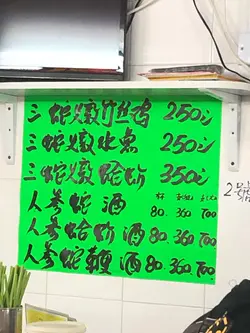 三蛇燉竹丝鸡 250元
三蛇燉水鱼 250元
三蛇燉蛤蚧 350元
人参蛇酒 80. 360. 700
人参蛤蚧酒 80. 360. 700
人参蛇鞭酒 80. 360. 700